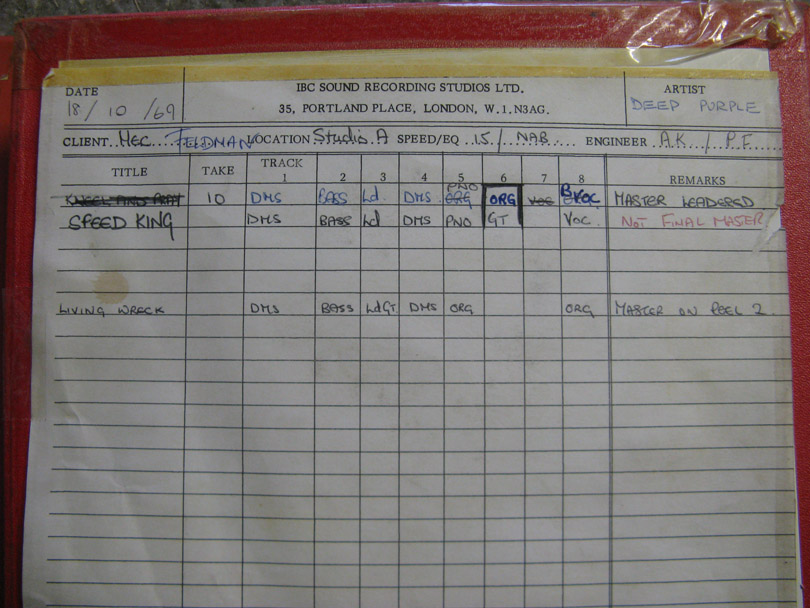 DATE IBC SOUND RECORDING STUDIOS LTD. ARTIST
18/10/69 35, PORTLAND PLACE, LONDON, W.1.N3AG. DEEP PURPLE
CLIENT HEC FELDMAN LOCATION Studio A SPEED/EQ 15/NAB ENGINEER A.K / P.F.
TITLE TAKE TRACK 1 2 3 4 5 6 7 8 REMARKS
PNO
KNEEL AND PRAY 10 DMS BASS Ld DMS ORG ORG VOC BVOC MASTER LEADERED
SPEED KING DMS BASS Ld DMS PNO GT VOC. NOT FINAL MASTER
LIVING WRECK DMS BASS LdGT DMS ORG ORG MASTER ON REEL 2.